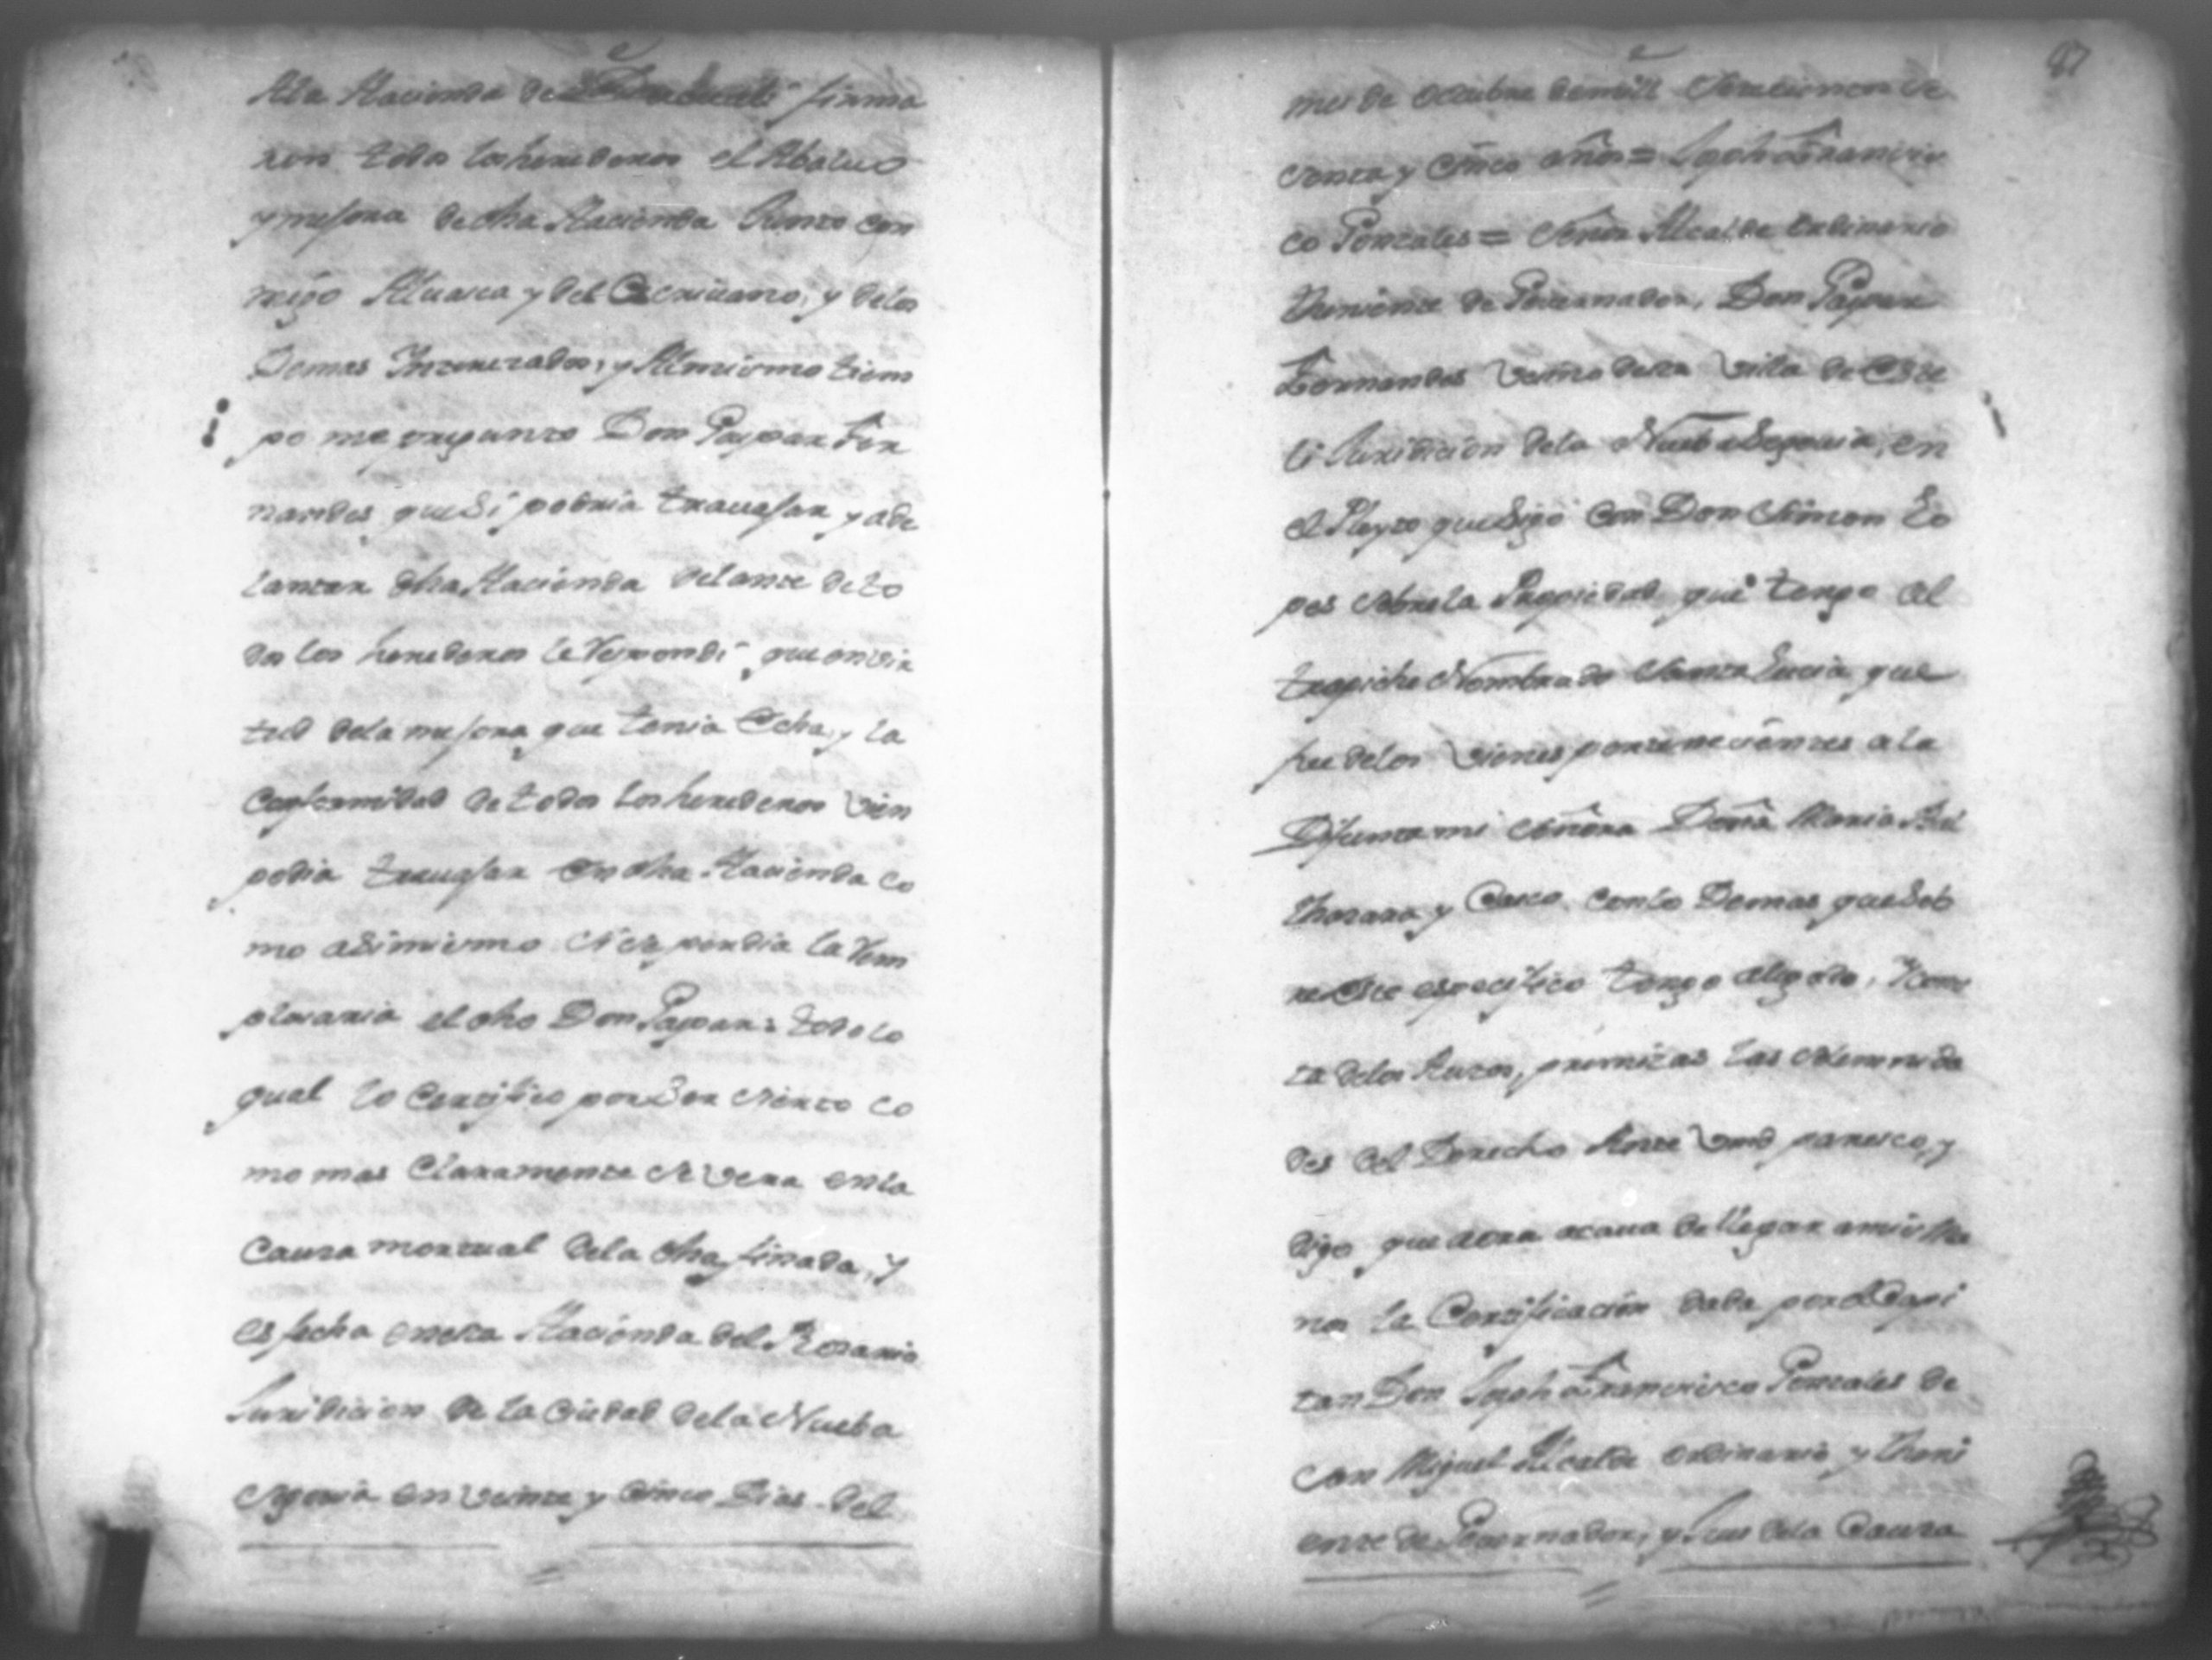 Ala Hacienda de firma
ron todos los herederos el Abaluo
y mejora de dha Hacienda Junto con
migo Alluara y del Escriuano, y delos
Demas Interezados, y Almismo tiem
po me pregunto Don Gaspar Fer
nandes que Si podria trauajar y ade
lantar dha Hacienda delante de to
dos los herederos le Respondi que en vir
tud dela mejora que tenia Echa, y la
Conformidad de todos los herederos vien
podia trauajar en dha Hacienda co
mo asimismo Respondia la
el dho Don Gaspar: todo lo
qual lo Certifico por Ser Cierto co
mo mas Claramente Se vera en la
Causa mortual dela dha finada, y
es fecha en esta Hacienda del Rosario
Juridicion de la Ciudad dela Nueba
Segovia en veinte y Cinco Dias del
87
mes de Octubre de mill Setecientos Se
senta y Cinco años = Joseph Francis
co Gonzales = Señor Alcalde Ordinario
Theniente de Governador, Don Gaspar
Fernandes Vecino desta Villa de Este
li Juridicion dela Nueba Segovia, en
el Pleyto que Sigo Con Don Simon Lo
pes Sobre la Propiedad que tengo al
trapiche Nombrado Santa Lucia que
fue delos Vienes pertenecientes a la
Difunta mi Señora Doña Maria Bal
thozara y Casco con lo Demas que Sob
re Este especifico tengo alegado, Rem
ta delos Autos, premizas las Solemnida
des del Derecho Ante Vmd paresco, y
digo que aora acaua de llegar a mis Ma
nos la Certificacion dada por el Capi
tan Don Joseph Francisco Gonzales de
San Miguel Alcalde Ordinario y Theni
ente de Governador, y Jues dela Causa